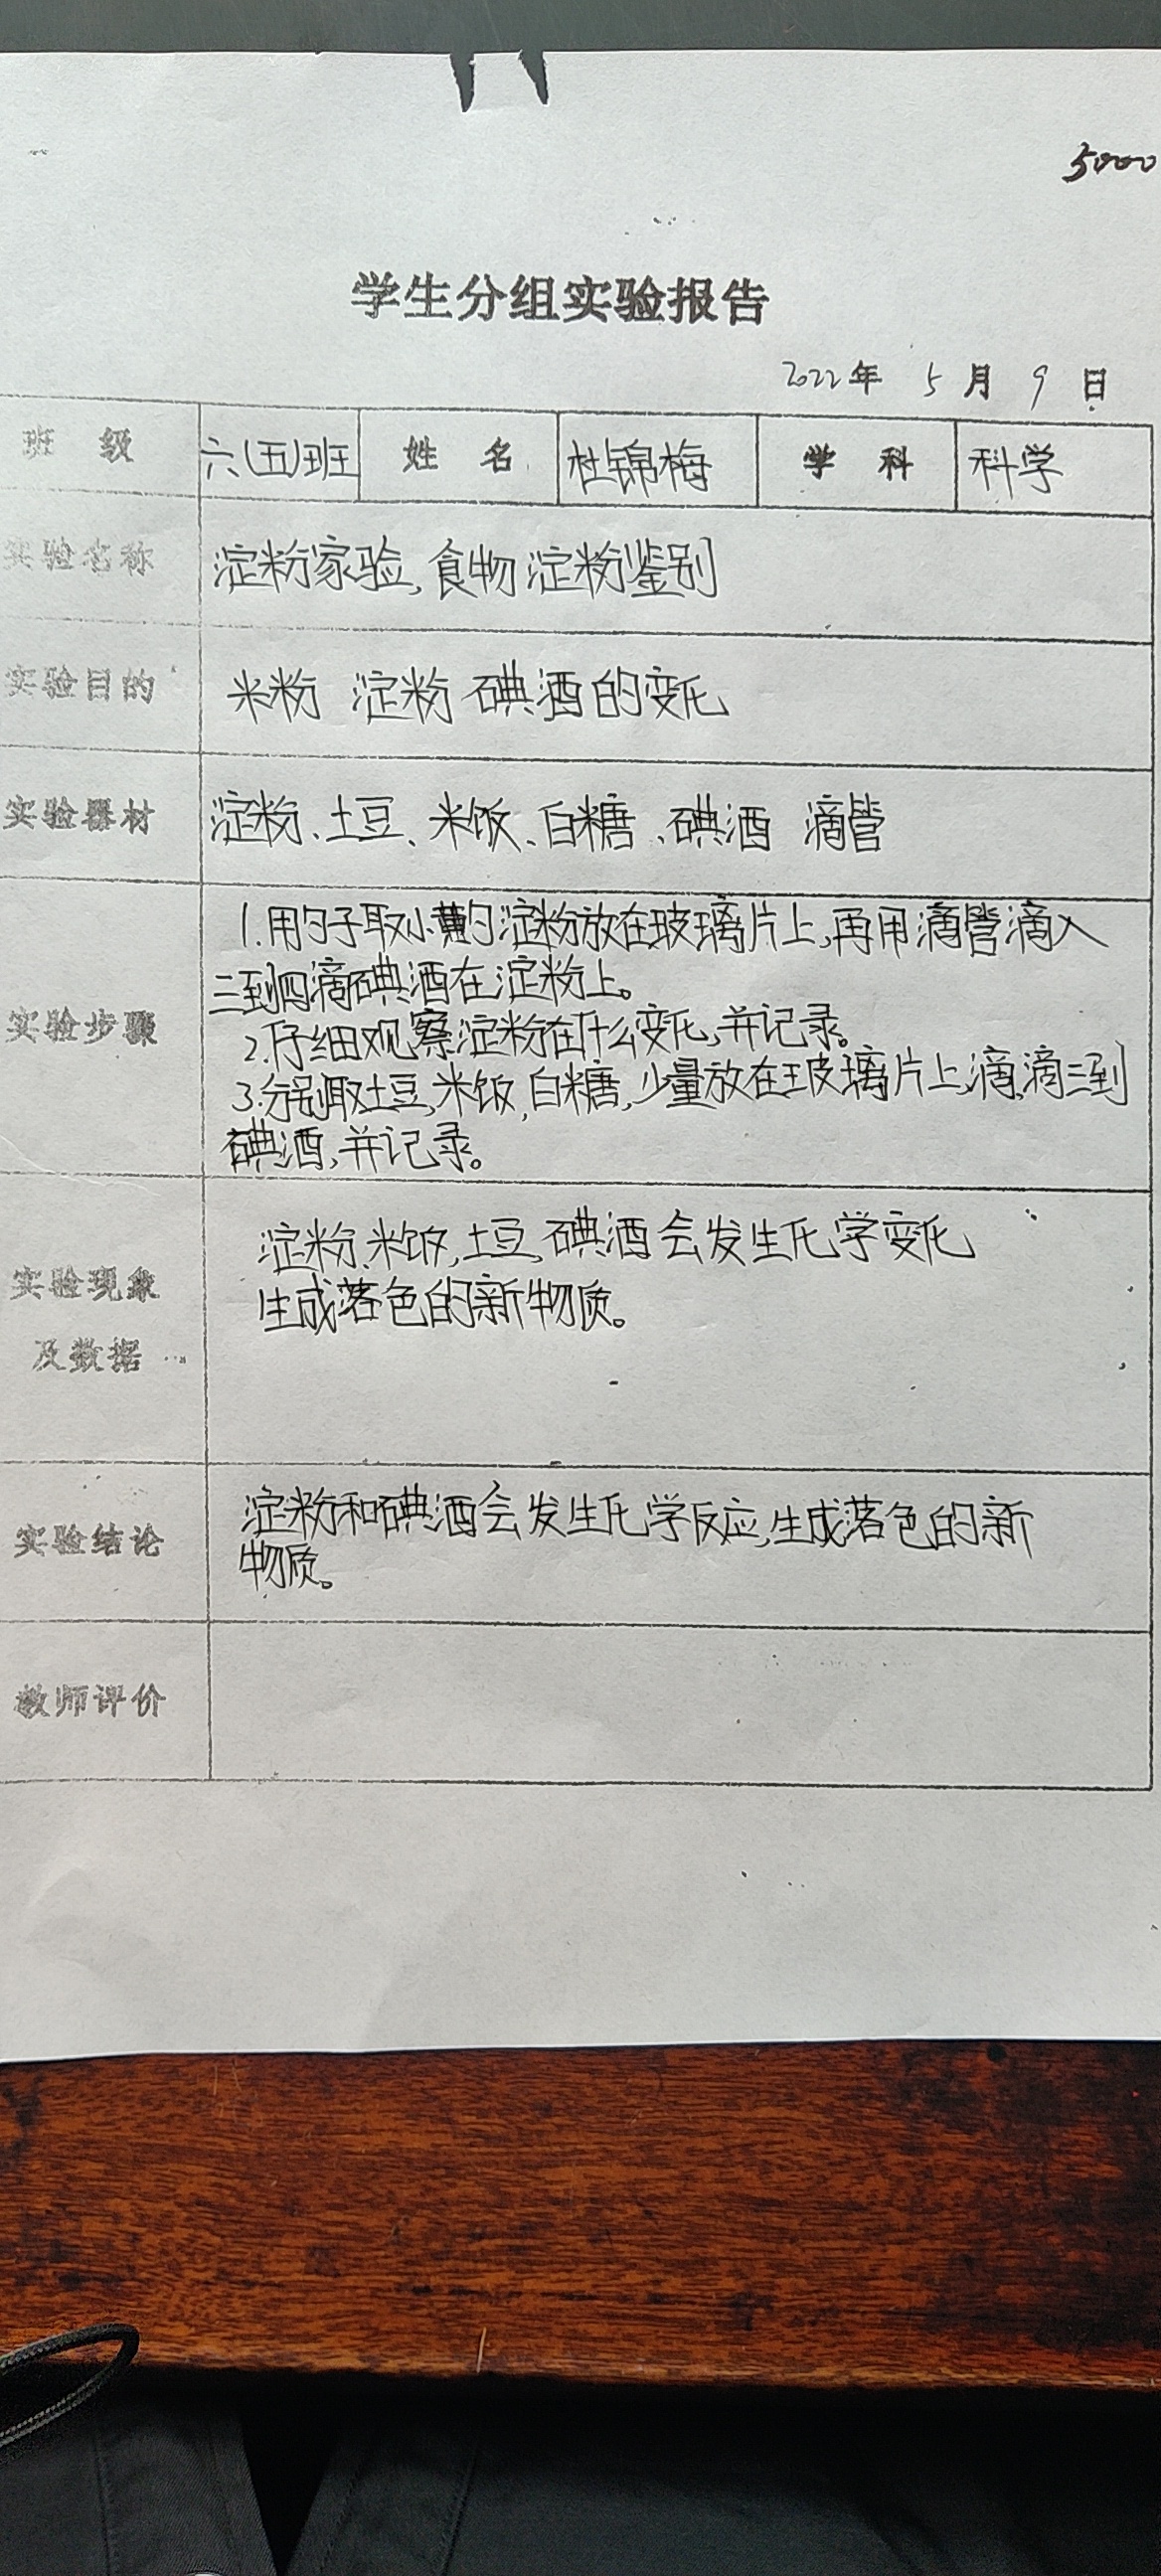 5000
学生分组实验报告
2022年 5月 9日
班 级 六(五)班 姓 名 杜锦梅 学 科 科学
实验名称 淀粉家验,食物淀粉鉴别
实验目的 米粉 淀粉 碘酒的变化
实验器材 淀粉、土豆、米饭、白糖、碘酒 滴管
实验步骤
1.用勺子取小勺淀粉放在玻璃片上,再用滴管滴入
三到四滴碘酒在淀粉上。
2.仔细观察淀粉在什么变化,并记录。
3.分别取土豆,米饭,白糖,少量放在玻璃片上,滴滴三到
碘酒,并记录。
实验现象
及数据
淀粉、米饭,土豆,碘酒会发生化学变化
生成落色的新物质。
实验结论
淀粉和碘酒会发生化学反应,生成落色的新
物质。
教师评价